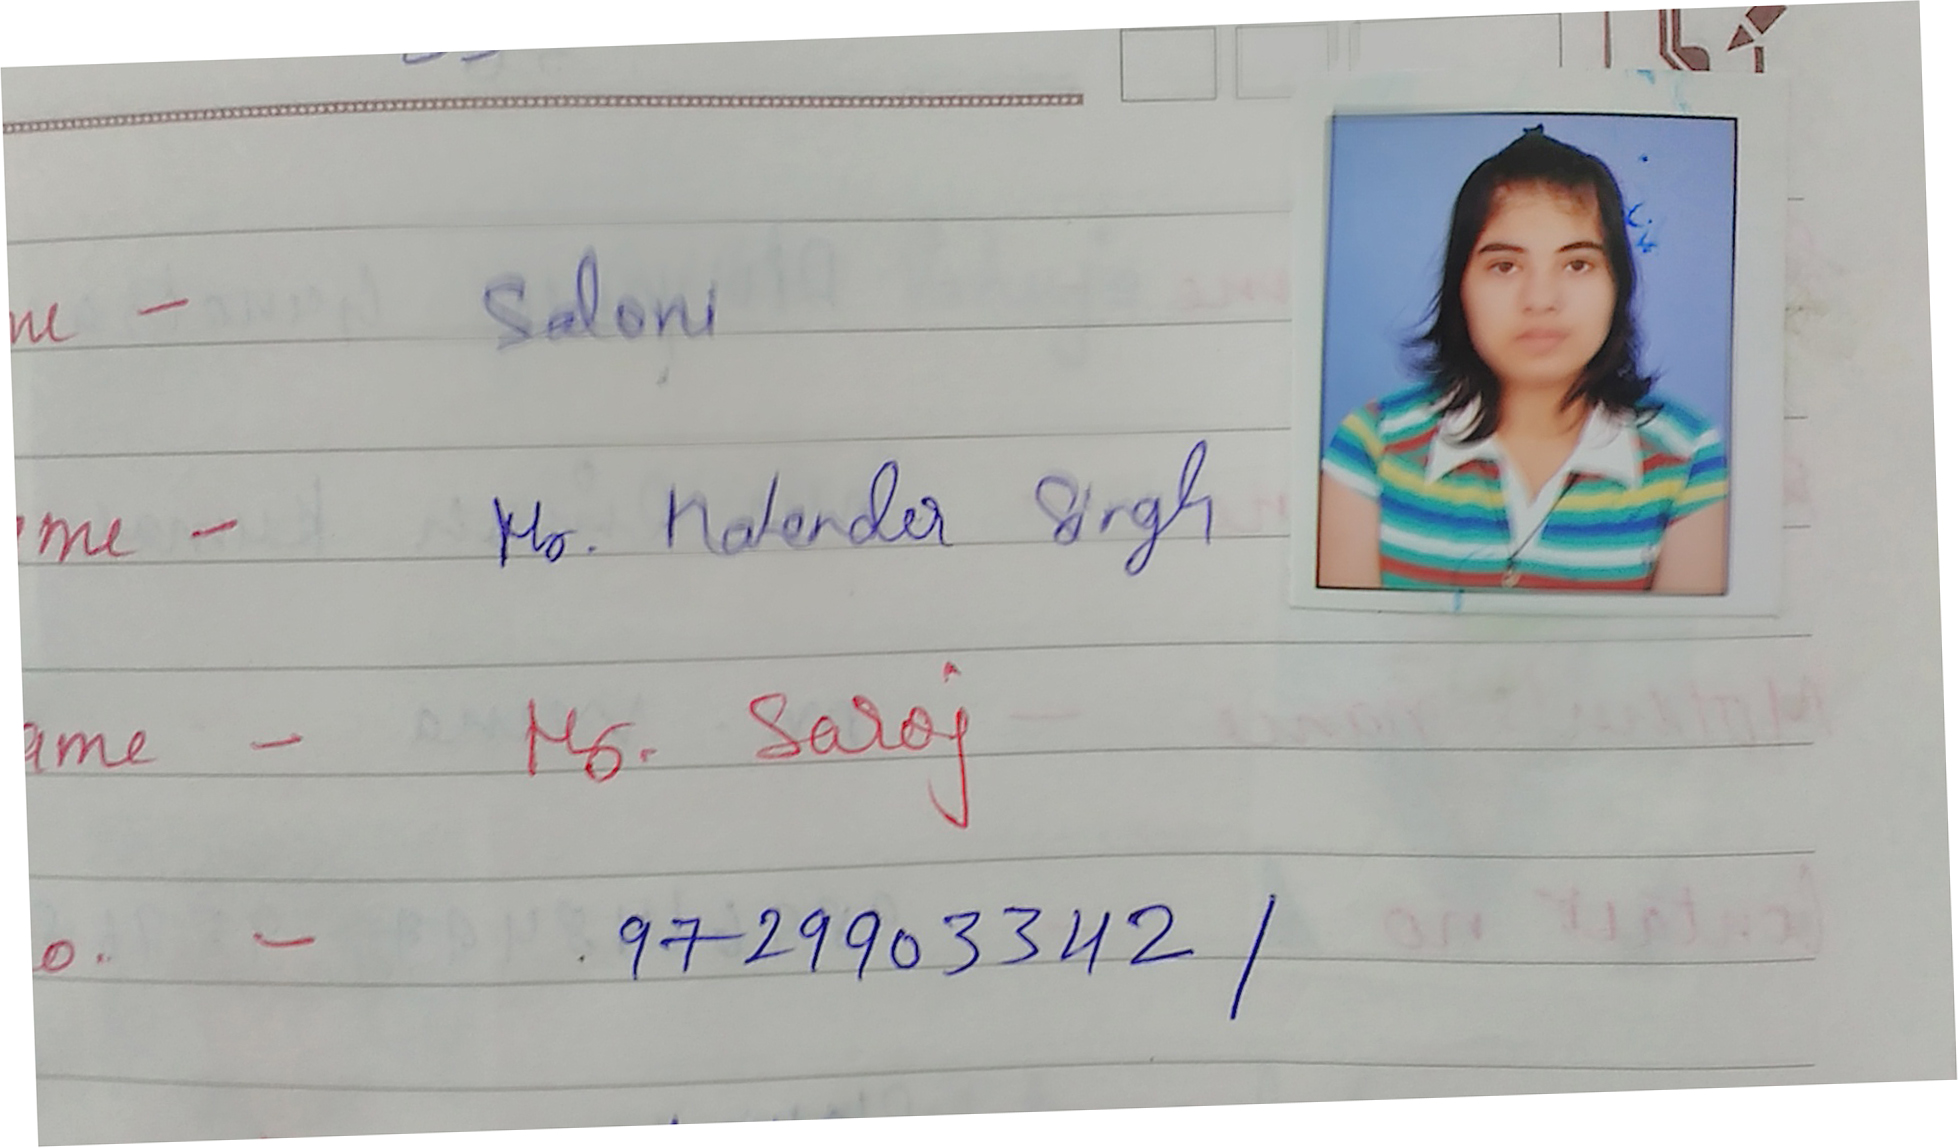 me - Saloni
me - Mr. Natender Singh
ame - Ms. Saroj
o. - 9729903342 /